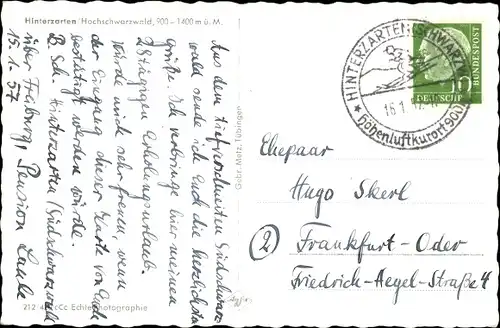 Hinterzarten/Hochschwarzwald, 900-1400 m ü. M.
Aus dem tiefverschneiten Südschwarz-
wald sende ich Euch die herzlichsten
Grüße. Ich verbringe hier meinen
28tägigen Erholungsurlaub.
Würde mich sehr freuen, wenn
der Eingang dieser Karte von Euch
bestätigt werden würde.
B. Sch. Hinterzarten/Südschwarzwald
über Freiburg, Pension
15.1.57
212 Echte Photographie
Gebr. Metz, Tübingen
HINTERZARTEN (SCHWARZW)
16.1.
Höhenluftkurort 900
DEUTSCHE BUNDESPOST
10
Ehepaar
Hugo Skerl
2 Frankfurt-Oder
Friedrich-Hegel-Straße 4